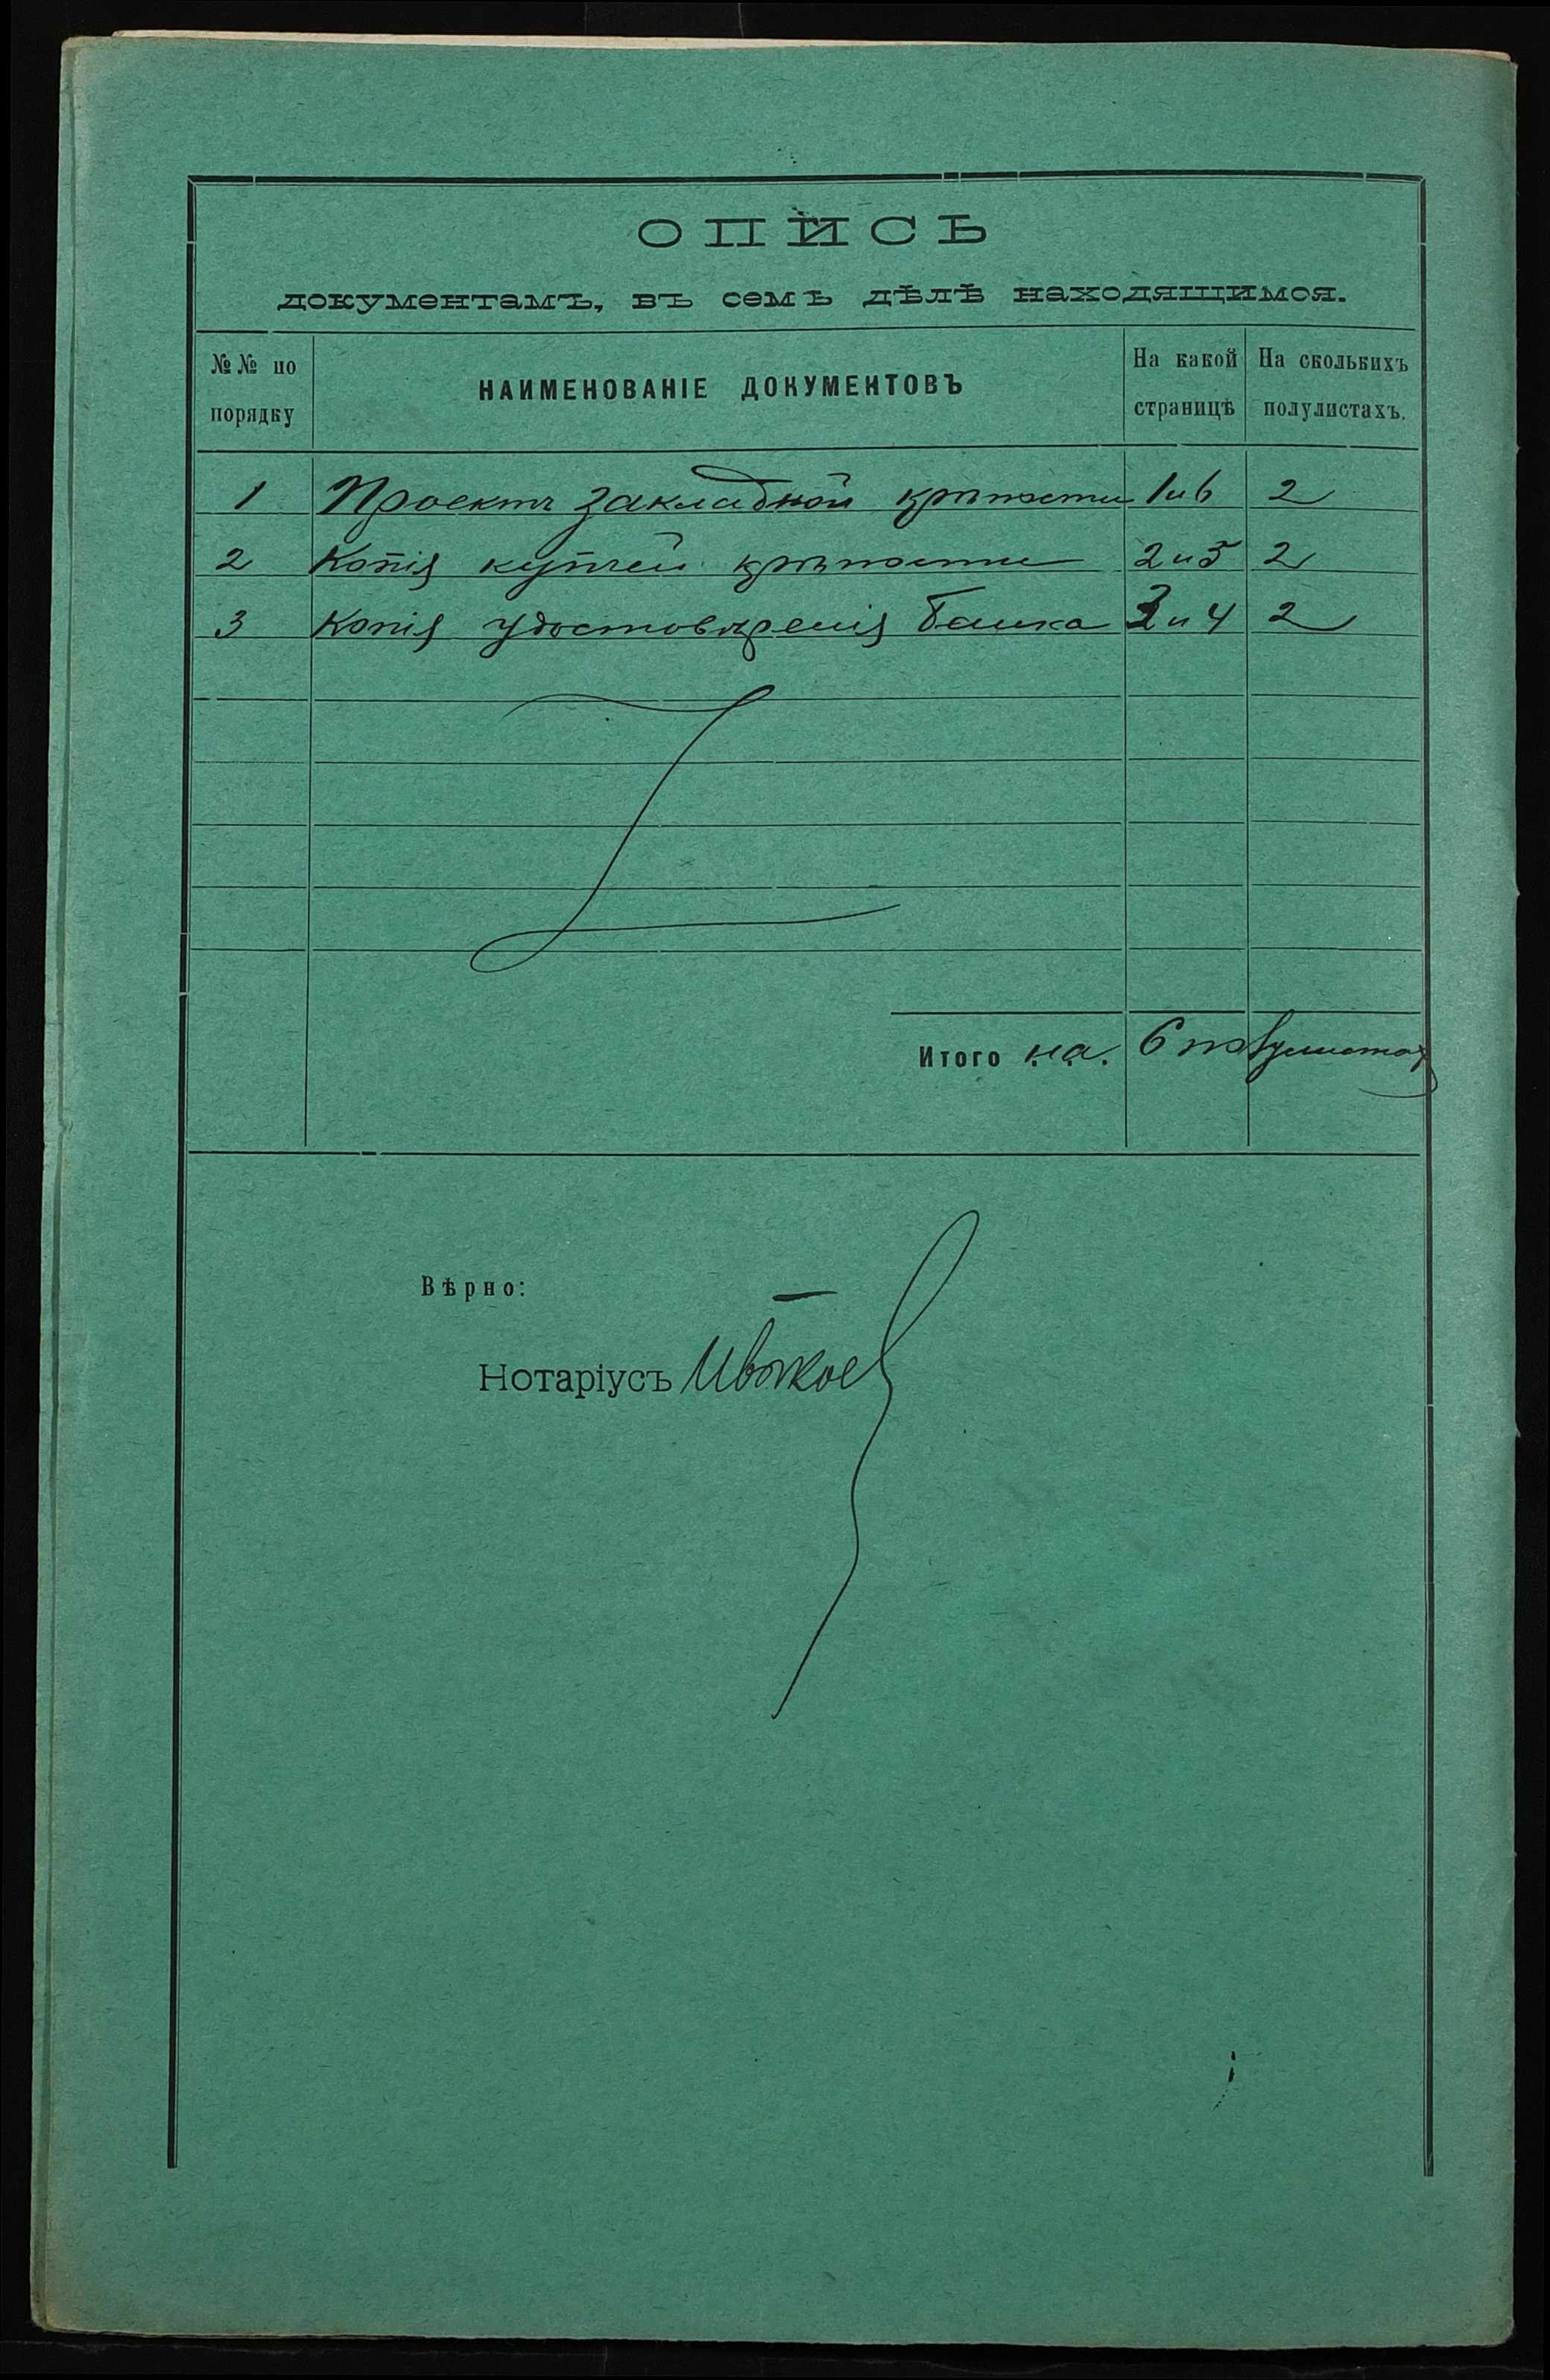 ОПИСЬ
документамъ, въ семъ дѣлѣ находящимся.
№№ по порядку
НАИМЕНОВАНІЕ ДОКУМЕНТОВЪ
На какой страницѣ
На сколькихъ полулистахъ.
1 Проектъ закладной крѣпости 1 и 6 2
2 Копія купчей крѣпости 2 и 5 2
3 Копія удостовѣренія Банка 3 и 4 2
Итого на 6 полулистах
Вѣрно:
Нотаріусъ